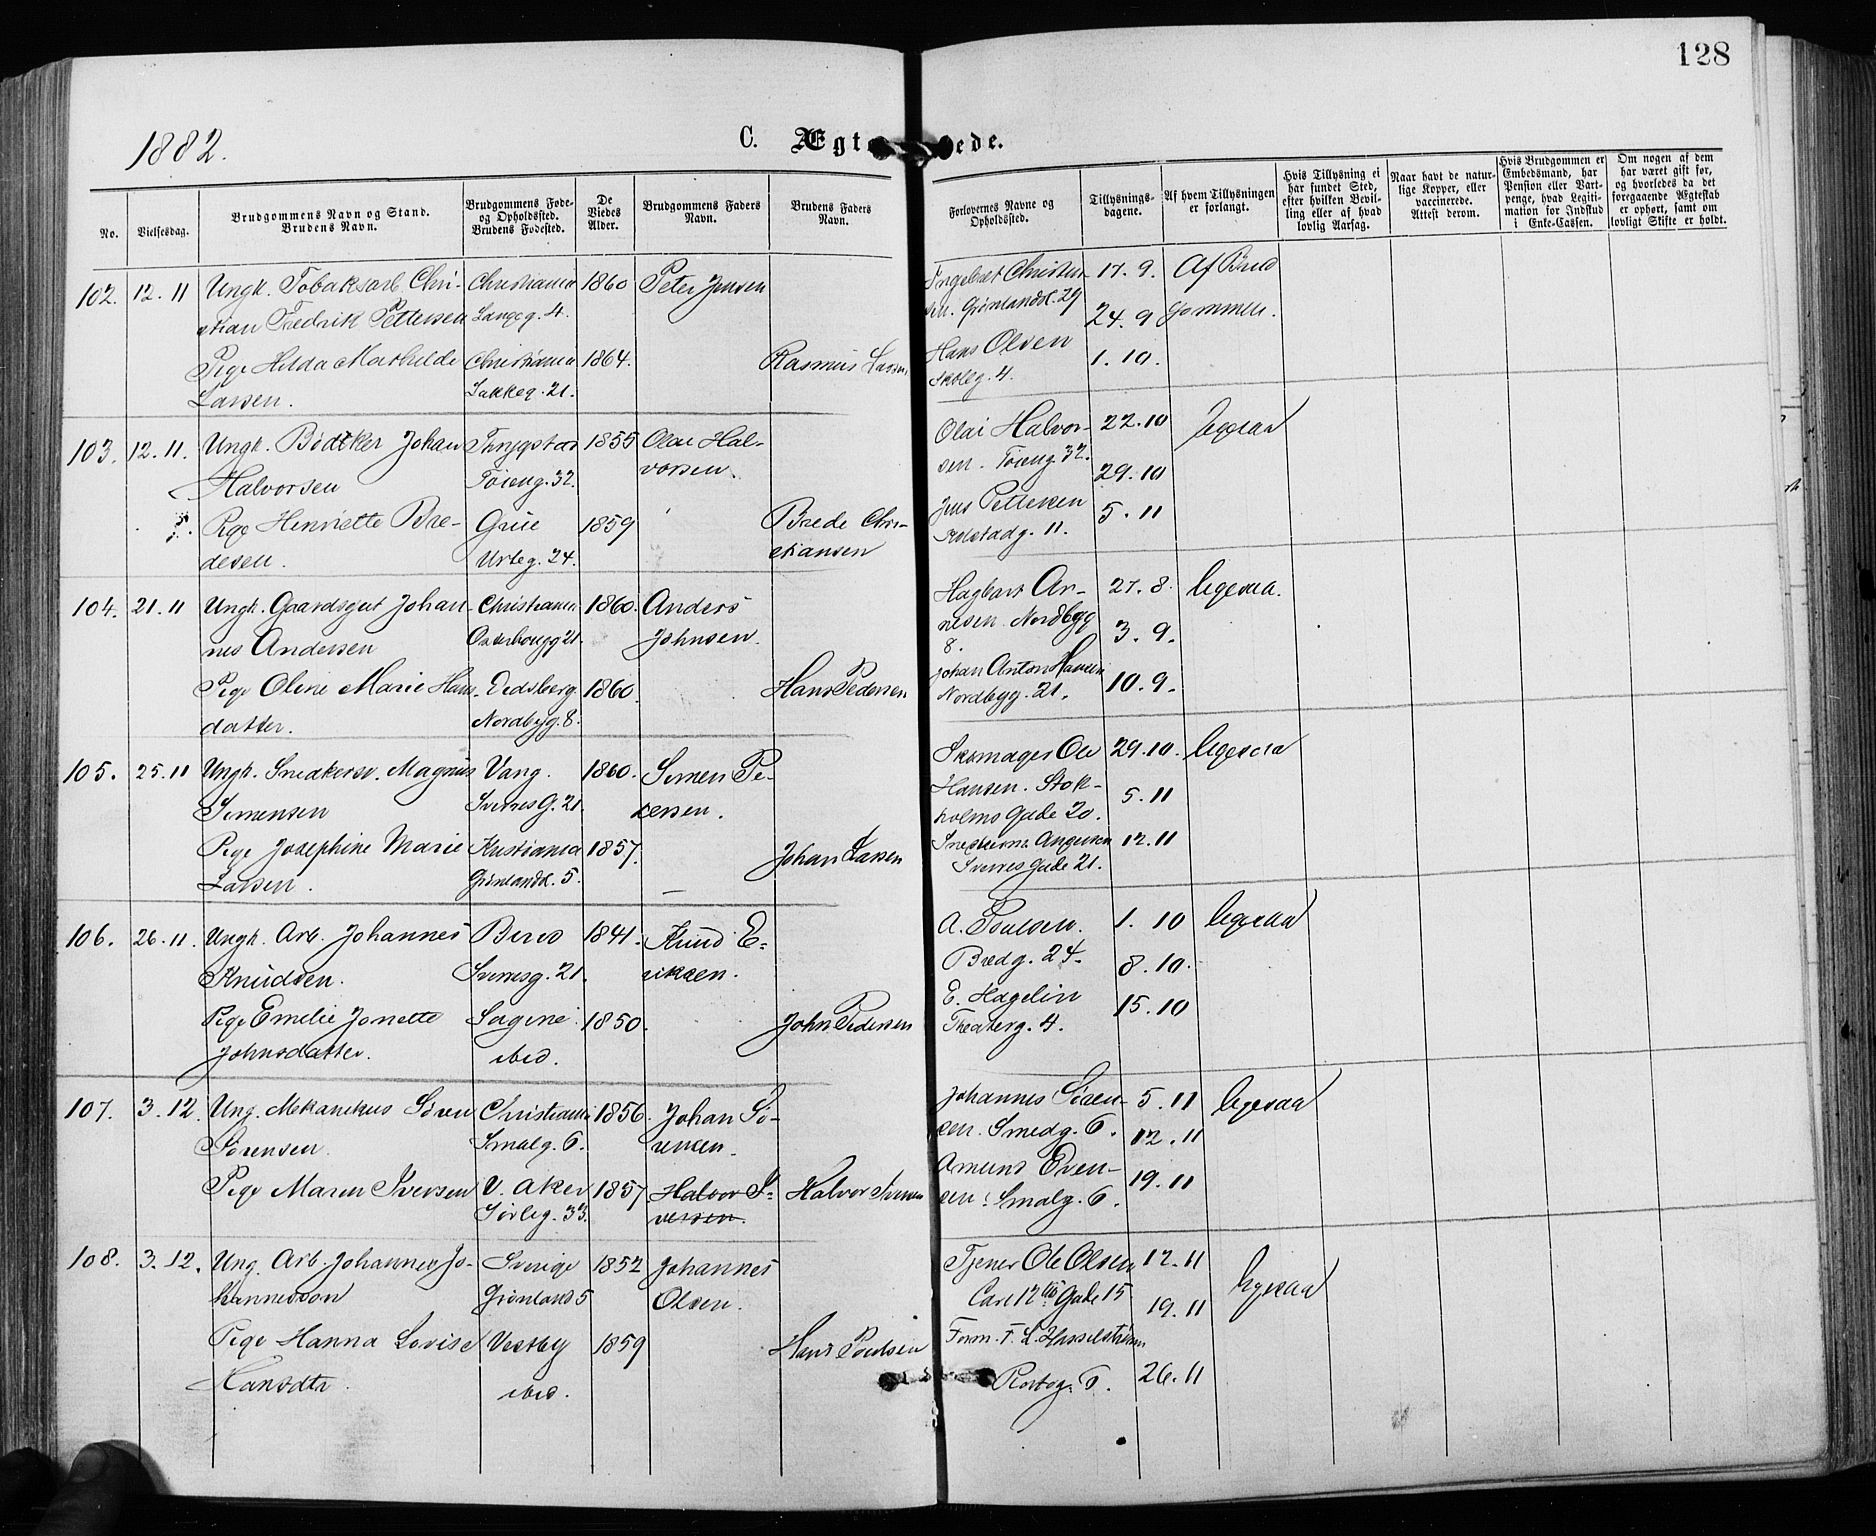 128
1882.
C. Ægt ede.
No.
Vielsesdag.
Brudgommens Navn og Stand.
Brudens Navn.
Brudgommens Føde-
og Opholdssted.
Brudens Fødested.
De
Viedes
Alder.
Brudgommens Faders
Navn.
Brudens Faders
Navn.
Forlovernes Navne og
Opholdssted.
Tillysnings-
dagene.
Af hvem Tillysningen
er forlangt.
Hvis Tillysning ei
har fundet Sted,
efter hvilken Bevil-
ling eller af hvad
lovlig Aarsag.
Naar havt de natur-
lige Kopper, eller
vaccinerede.
Attest derom.
Hvis Brudgommen er
Embedsmand, har
Pension eller Vart-
penge, hvad Legiti-
mation for Indskud
i Enke-Cassen.
Om nogen af dem
har været gift før,
og hvorledes da det
foregaaende Ægteskab
er ophørt, samt om
lovligt Skifte er holdt.
102. 12. 11 Ungk. Tobaksarb. Chri- Christiania 1860 Peter Jensen
stian Fredrik Pettersen Langeg. 4.
Pige Hilda Mathilde Christiania 1864. Rasmus Larsen
Larsen. Lakkeg. 21.
Ingebret Christen- 17. 9. Af Brud
sen. Grønlandsl. 29 24. 9 gommen.
Hans Olsen 1. 10.
Skoleg. 4.
103. 12. 11. Ungk. Bødtker Johan Trygstad 1855 Olai Hal-
Halvorsen Tøieng. 32. vorsen.
Pige Henriette Bre- Grue 1859 Brede Chri-
desen. Urteg. 24. stiansen
Olai Halvor- 22. 10 ligesaa
sen. Tøieng 32. 29. 10
Jens Pettersen 5. 11
11.
104. 21. 11 Ungk. Gaardsgut Johan- Christiania 1860. Anders
nes Andersen 21. Johnsen.
Pige Oline Marie Hans- Eidsberg 1860. Hans Pedersen
datter. Nordbyg. 8.
Hagbart Ar- 27. 8. ligesaa.
nesen. Nordbyg 3. 9.
8.
Johan Anton Hansen 10. 9.
Nordbyg. 21.
105. 25. 11 Ungk. Snedkersv. Magnus Vang. 1860. Simen Pe-
Simensen Sverres G. 21. dersen.
Pige Josephine Marie Kristiania 1857. Johan Larsen
Larsen. Grønlandsl. 5.
Skomager Ole 29. 10. ligesaa
Hansen. Stok- 5. 11
holms Gade 20.
12. 11
Sverres Gade 21.
106. 26. 11. Ungk. Arb. Johannes Bired 1841. Knud E-
Knudsen. Sverresg. 21. riksen.
Pige Emelie Jonette Sogne 1850. John Pedersen
Johnsdatter. ibid.
A. Poulsen. 1. 10 ligesaa
Bredg. 24. 8. 10.
E. Hagelin 15. 10
Theaterg. 4.
107. 3. 12. Ung. Mekanikus Søren Christiania 1856. Johan Sø-
Sørensen. Smalg. 6. rensen.
Pige Maren Iversen V. Aker 1857 Halvor I- Halvor Iversen
Tøileg. 33. versen.
Johannes Søren- 5. 11 ligesaa
sen. Smedg. 6. 12. 11
Amund Even- 19. 11
sen. Smalg. 6.
108. 3. 12. Ung. Arb. Johannes Jo- Sverige 1852 Johannes
hannesson Grønland 5 Olsen.
Pige Hanna Lovise Vestby 1859 Hans Poulsen
Hansdtr. ibid.
Tjener Ole Olsen 12. 11 ligesaa
Carl 12tes Gade 15 19. 11
Form. F. L. Hasselstrøm
Rostog. 6. 26. 11